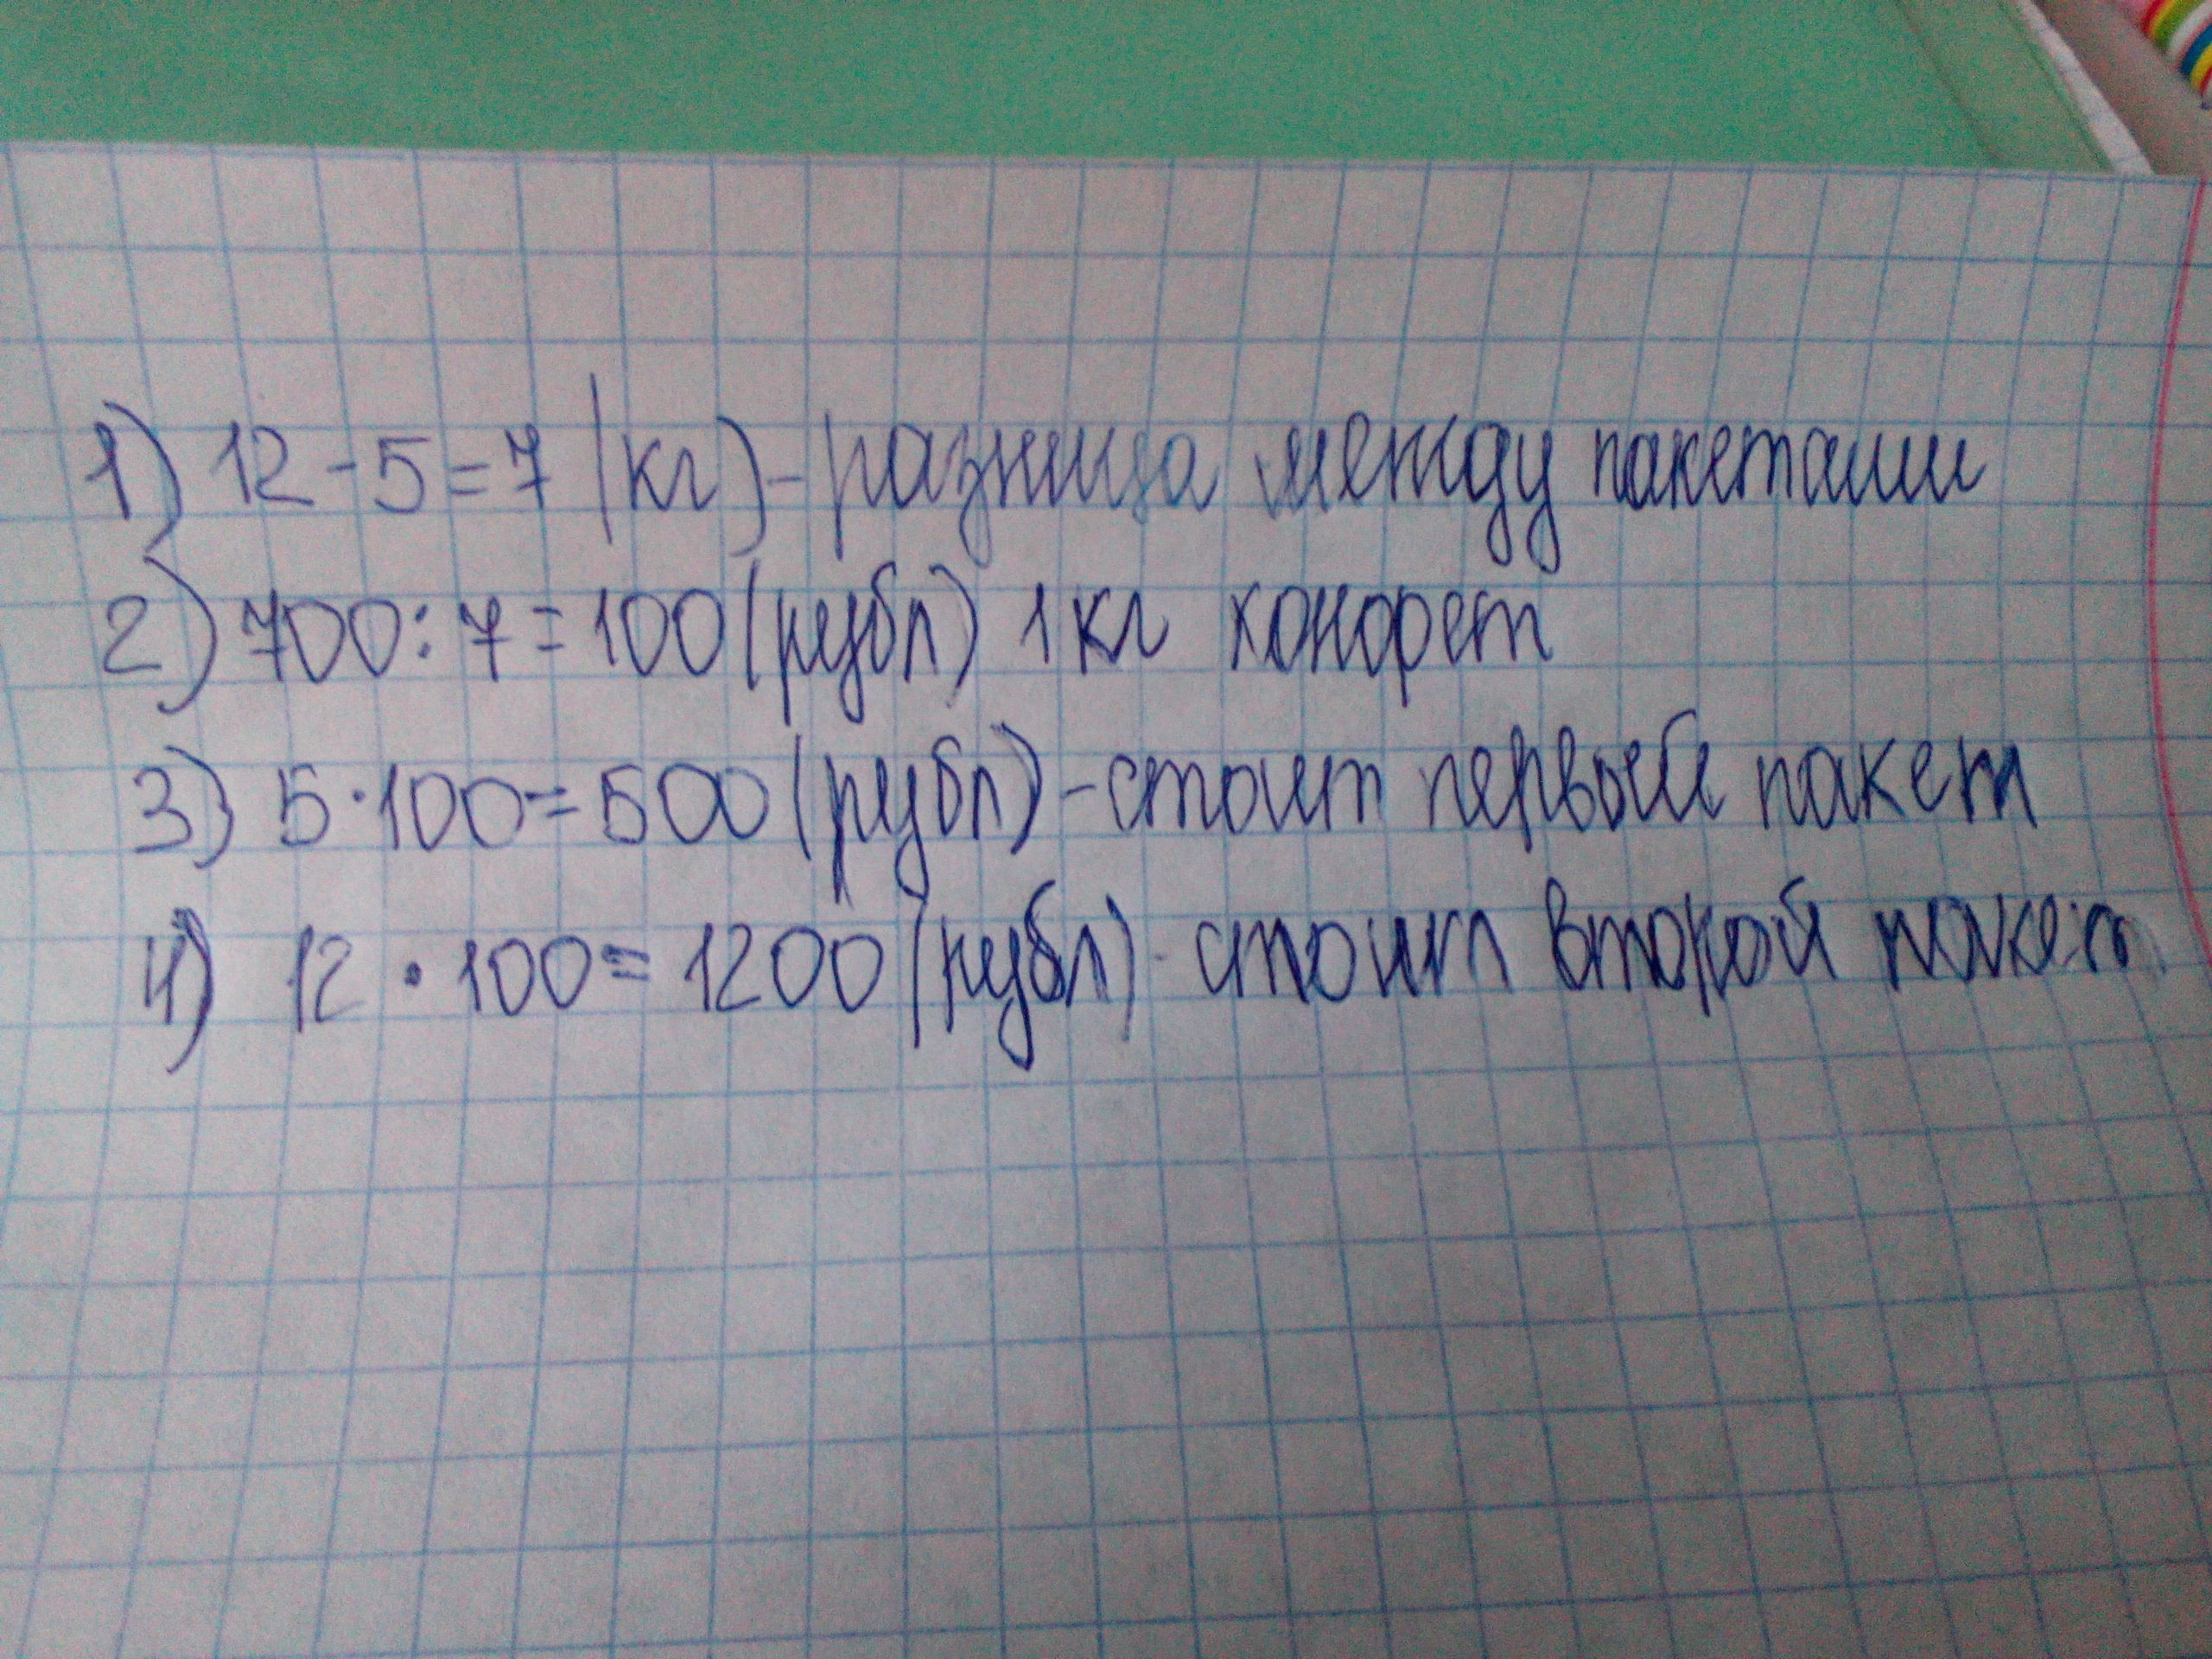 1) 12-5=7 (кг)-разница между пакетами
2) 700:7=100(рубл) 1кг конфет
3) 5·100=500(рубл)-стоит первый пакет
4) 12·100=1200(рубл)-стоит второй пакет